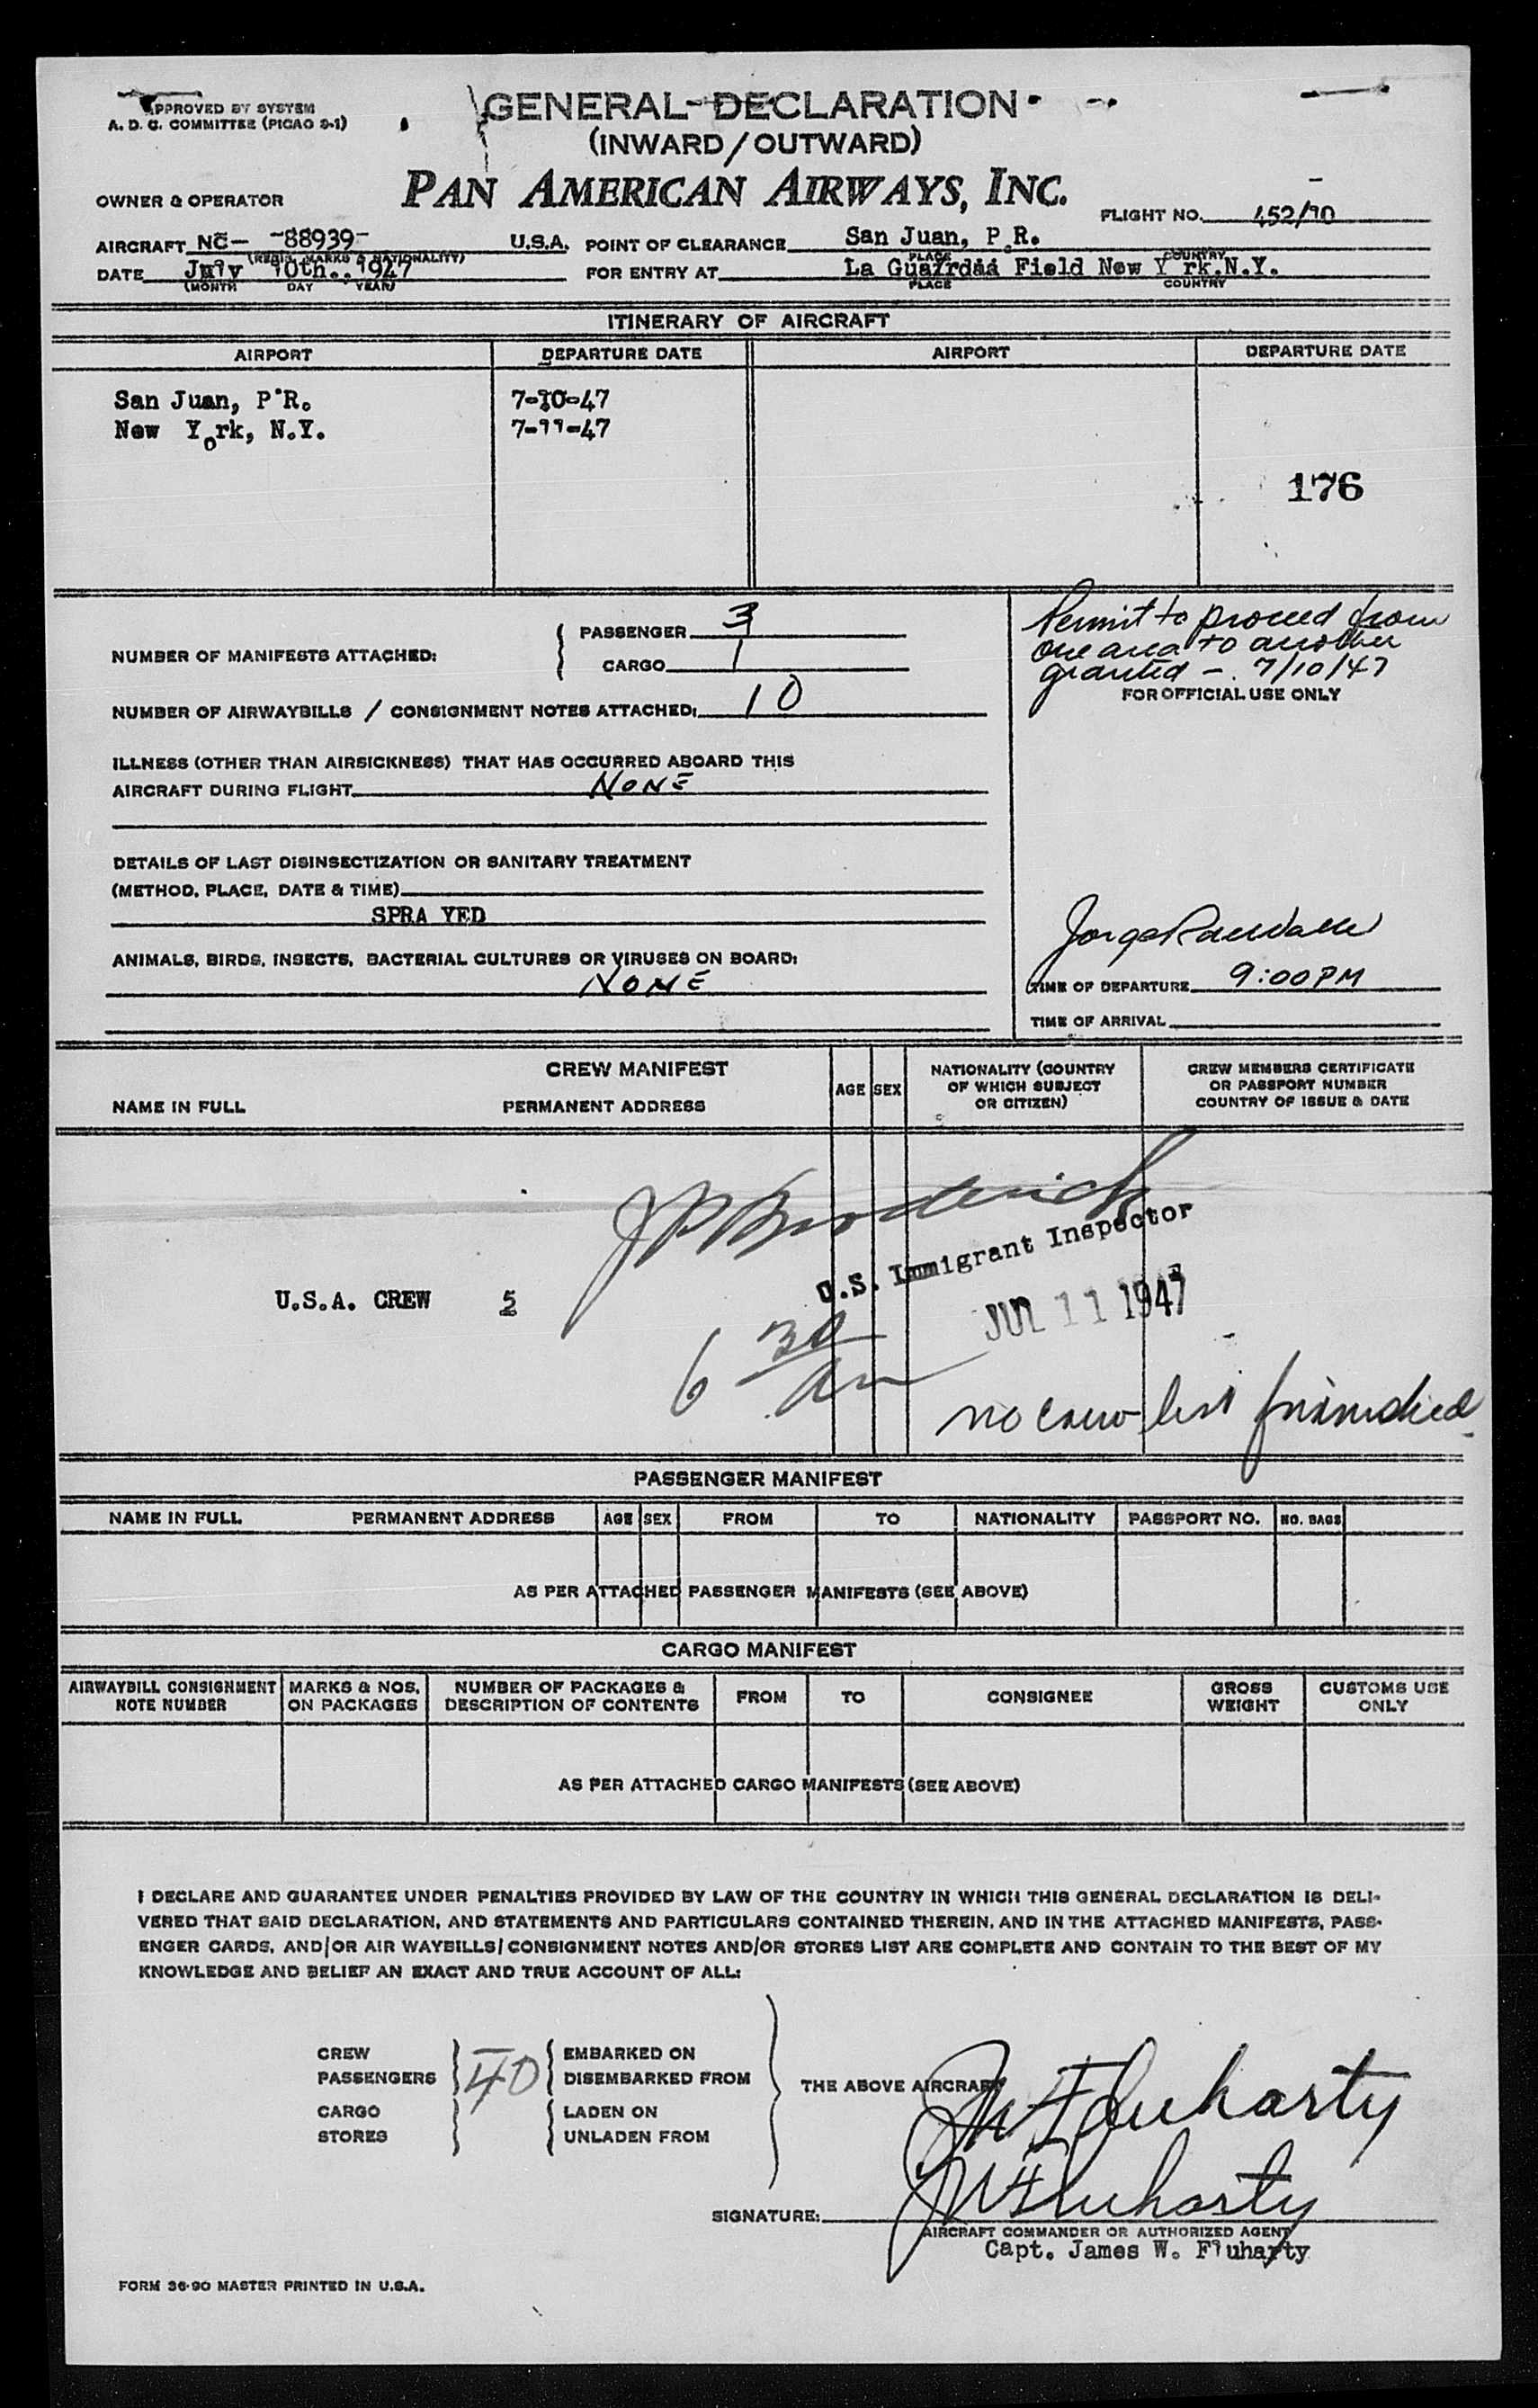 APPROVED BY SYSTEM
A. D. C. COMMITTEE (PICAO 9-1)
GENERAL DECLARATION
(INWARD/OUTWARD)
PAN AMERICAN AIRWAYS, INC.
OWNER & OPERATOR
FLIGHT NO. 452/10
AIRCRAFT NC- -88939- U.S.A. POINT OF CLEARANCE San Juan, P.R.
(REGIS. MARKS & NATIONALITY) PLACE COUNTRY
DATE July 10th., 1947 FOR ENTRY AT La Guairdaa Field New Y rk.N.Y.
(MONTH DAY YEAR) PLACE COUNTRY
ITINERARY OF AIRCRAFT
AIRPORT DEPARTURE DATE AIRPORT DEPARTURE DATE
San Juan, P.R. 7-10-47
New York, N.Y. 7-11-47
176
Permit to proceed from
one area to another
granted - 7/10/47
FOR OFFICIAL USE ONLY
NUMBER OF MANIFESTS ATTACHED: PASSENGER 3
CARGO 1
NUMBER OF AIRWAYBILLS / CONSIGNMENT NOTES ATTACHED: 10
ILLNESS (OTHER THAN AIRSICKNESS) THAT HAS OCCURRED ABOARD THIS
AIRCRAFT DURING FLIGHT NONE
DETAILS OF LAST DISINSECTIZATION OR SANITARY TREATMENT
(METHOD, PLACE, DATE & TIME)
SPRA YED
ANIMALS, BIRDS, INSECTS, BACTERIAL CULTURES OR VIRUSES ON BOARD:
NONE
Jorge
TIME OF DEPARTURE 9:00PM
TIME OF ARRIVAL
CREW MANIFEST
NAME IN FULL PERMANENT ADDRESS AGE SEX NATIONALITY (COUNTRY OF WHICH SUBJECT OR CITIZEN) CREW MEMBERS CERTIFICATE OR PASSPORT NUMBER COUNTRY OF ISSUE & DATE
JP Broderick
U.S. Immigrant Inspector
U.S.A. CREW 5
JUL 11 1947
6 30 am
no crew list furnished
PASSENGER MANIFEST
NAME IN FULL PERMANENT ADDRESS AGE SEX FROM TO NATIONALITY PASSPORT NO. NO. BAGS
AS PER ATTACHED PASSENGER MANIFESTS (SEE ABOVE)
CARGO MANIFEST
AIRWAYBILL CONSIGNMENT NOTE NUMBER MARKS & NOS. ON PACKAGES NUMBER OF PACKAGES & DESCRIPTION OF CONTENTS FROM TO CONSIGNEE GROSS WEIGHT CUSTOMS USE ONLY
AS PER ATTACHED CARGO MANIFESTS (SEE ABOVE)
I DECLARE AND GUARANTEE UNDER PENALTIES PROVIDED BY LAW OF THE COUNTRY IN WHICH THIS GENERAL DECLARATION IS DELI-
VERED THAT SAID DECLARATION, AND STATEMENTS AND PARTICULARS CONTAINED THEREIN, AND IN THE ATTACHED MANIFESTS, PASS-
ENGER CARDS, AND/OR AIR WAYBILLS/CONSIGNMENT NOTES AND/OR STORES LIST ARE COMPLETE AND CONTAIN TO THE BEST OF MY
KNOWLEDGE AND BELIEF AN EXACT AND TRUE ACCOUNT OF ALL:
CREW EMBARKED ON
PASSENGERS 40 DISEMBARKED FROM
THE ABOVE AIRCRAFT
CARGO LADEN ON
STORES UNLADEN FROM
JW Fluharty
SIGNATURE: JW Fluharty
AIRCRAFT COMMANDER OR AUTHORIZED AGENT
Capt. James W. Fluharty
FORM 36-90 MASTER PRINTED IN U.S.A.